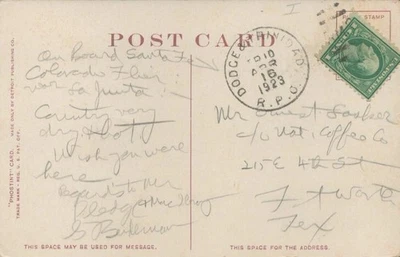 POST CARD
STAMP
DODGE & TRINIDAD
APR
16
1923
R.P.O.
On Board Santa Fe
Colorado Flier
near La Junta
Country very
dry & hot
Wish you were
here
regards to Mr
Pledge &
Mr Ernest
c/o Nat. Coffee Co
215 E 4th St
Ft Worth
Tex
"PHOSTINT" CARD.
MADE ONLY BY DETROIT PUBLISHING CO.
TRADE MARK - REG. U.S. PAT. OFF.
THIS SPACE MAY BE USED FOR MESSAGE.
THIS SPACE IS FOR THE ADDRESS.